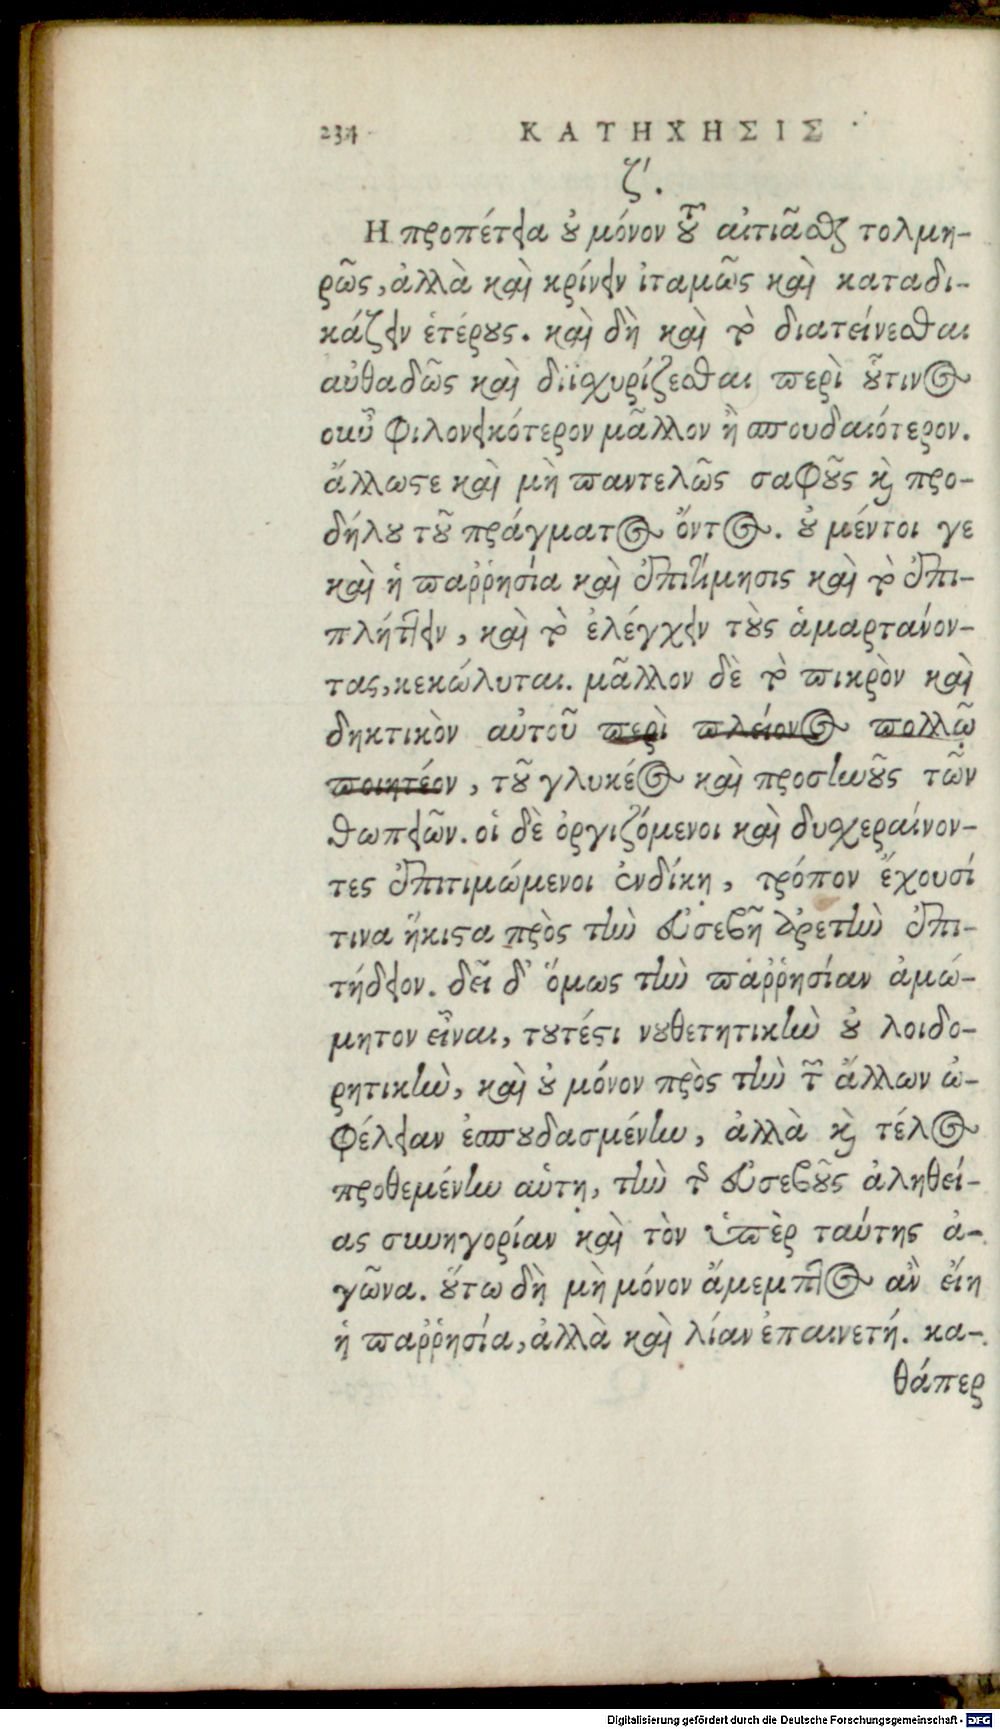 234 ΚΑΤΗΧΗΣΙΣ
ζ'.
Η προπέτεια οὐ μόνον τοῦ αἰτιᾶσθαι τολμη-
ρῶς, ἀλλὰ καὶ κρίνειν ἰταμῶς καὶ καταδι-
κάζειν ἑτέρους. καὶ δὴ καὶ τὸ διατείνεσθαι
αὐθαδῶς καὶ διϊσχυρίζεσθαι περὶ οὗτινος
οὖν φιλονεικότερον μᾶλλον ἢ σπουδαιότερον.
ἄλλωστε καὶ μὴ παντελῶς σαφοῦς καὶ προ-
δήλου τοῦ πράγματος ὄντος. οὐ μέντοι γε
καὶ ἡ παῤῥησία καὶ ἐπιτίμησις καὶ τὸ ἐπι-
πλήττειν, καὶ τὸ ἐλέγχειν τοὺς ἁμαρτάνον-
τας, κεκώλυται. μᾶλλον δὲ τὸ πικρὸν καὶ
δηκτικὸν αὐτοῦ περὶ πλείονος πολλῷ
ποιητέον, τοῦ γλυκέος καὶ προσηνοῦς τῶν
θωπειῶν. οἱ δὲ ὀργιζόμενοι καὶ δυσχεραίνον-
τες ἐπιτιμώμενοι ἐνδίκῃ, τρόπον ἔχουσί
τινα ἥκιστα πρὸς τὴν εὐσεβῆ ἀρετὴν ἐπι-
τήδειον. δεῖ δ' ὅμως τὴν παῤῥησίαν ἀμώ-
μητον εἶναι, τουτέστι νουθετητικὴν οὐ λοιδο-
ρητικὴν, καὶ οὐ μόνον πρὸς τὴν τῶν ἄλλων ὠ-
φέλειαν ἐσπουδασμένην, ἀλλὰ καὶ τέλος
προθεμένην αὑτῇ, τὴν τῆς εὐσεβοῦς ἀληθεί-
ας συνηγορίαν καὶ τὸν ὑπὲρ ταύτης ἀ-
γῶνα. οὕτω δὴ μὴ μόνον ἄμεμπτος ἂν εἴη
ἡ παῤῥησία, ἀλλὰ καὶ λίαν ἐπαινετή. κα-
θάπερ
Digitalisierung gefördert durch die Deutsche Forschungsgemeinschaft - DFG